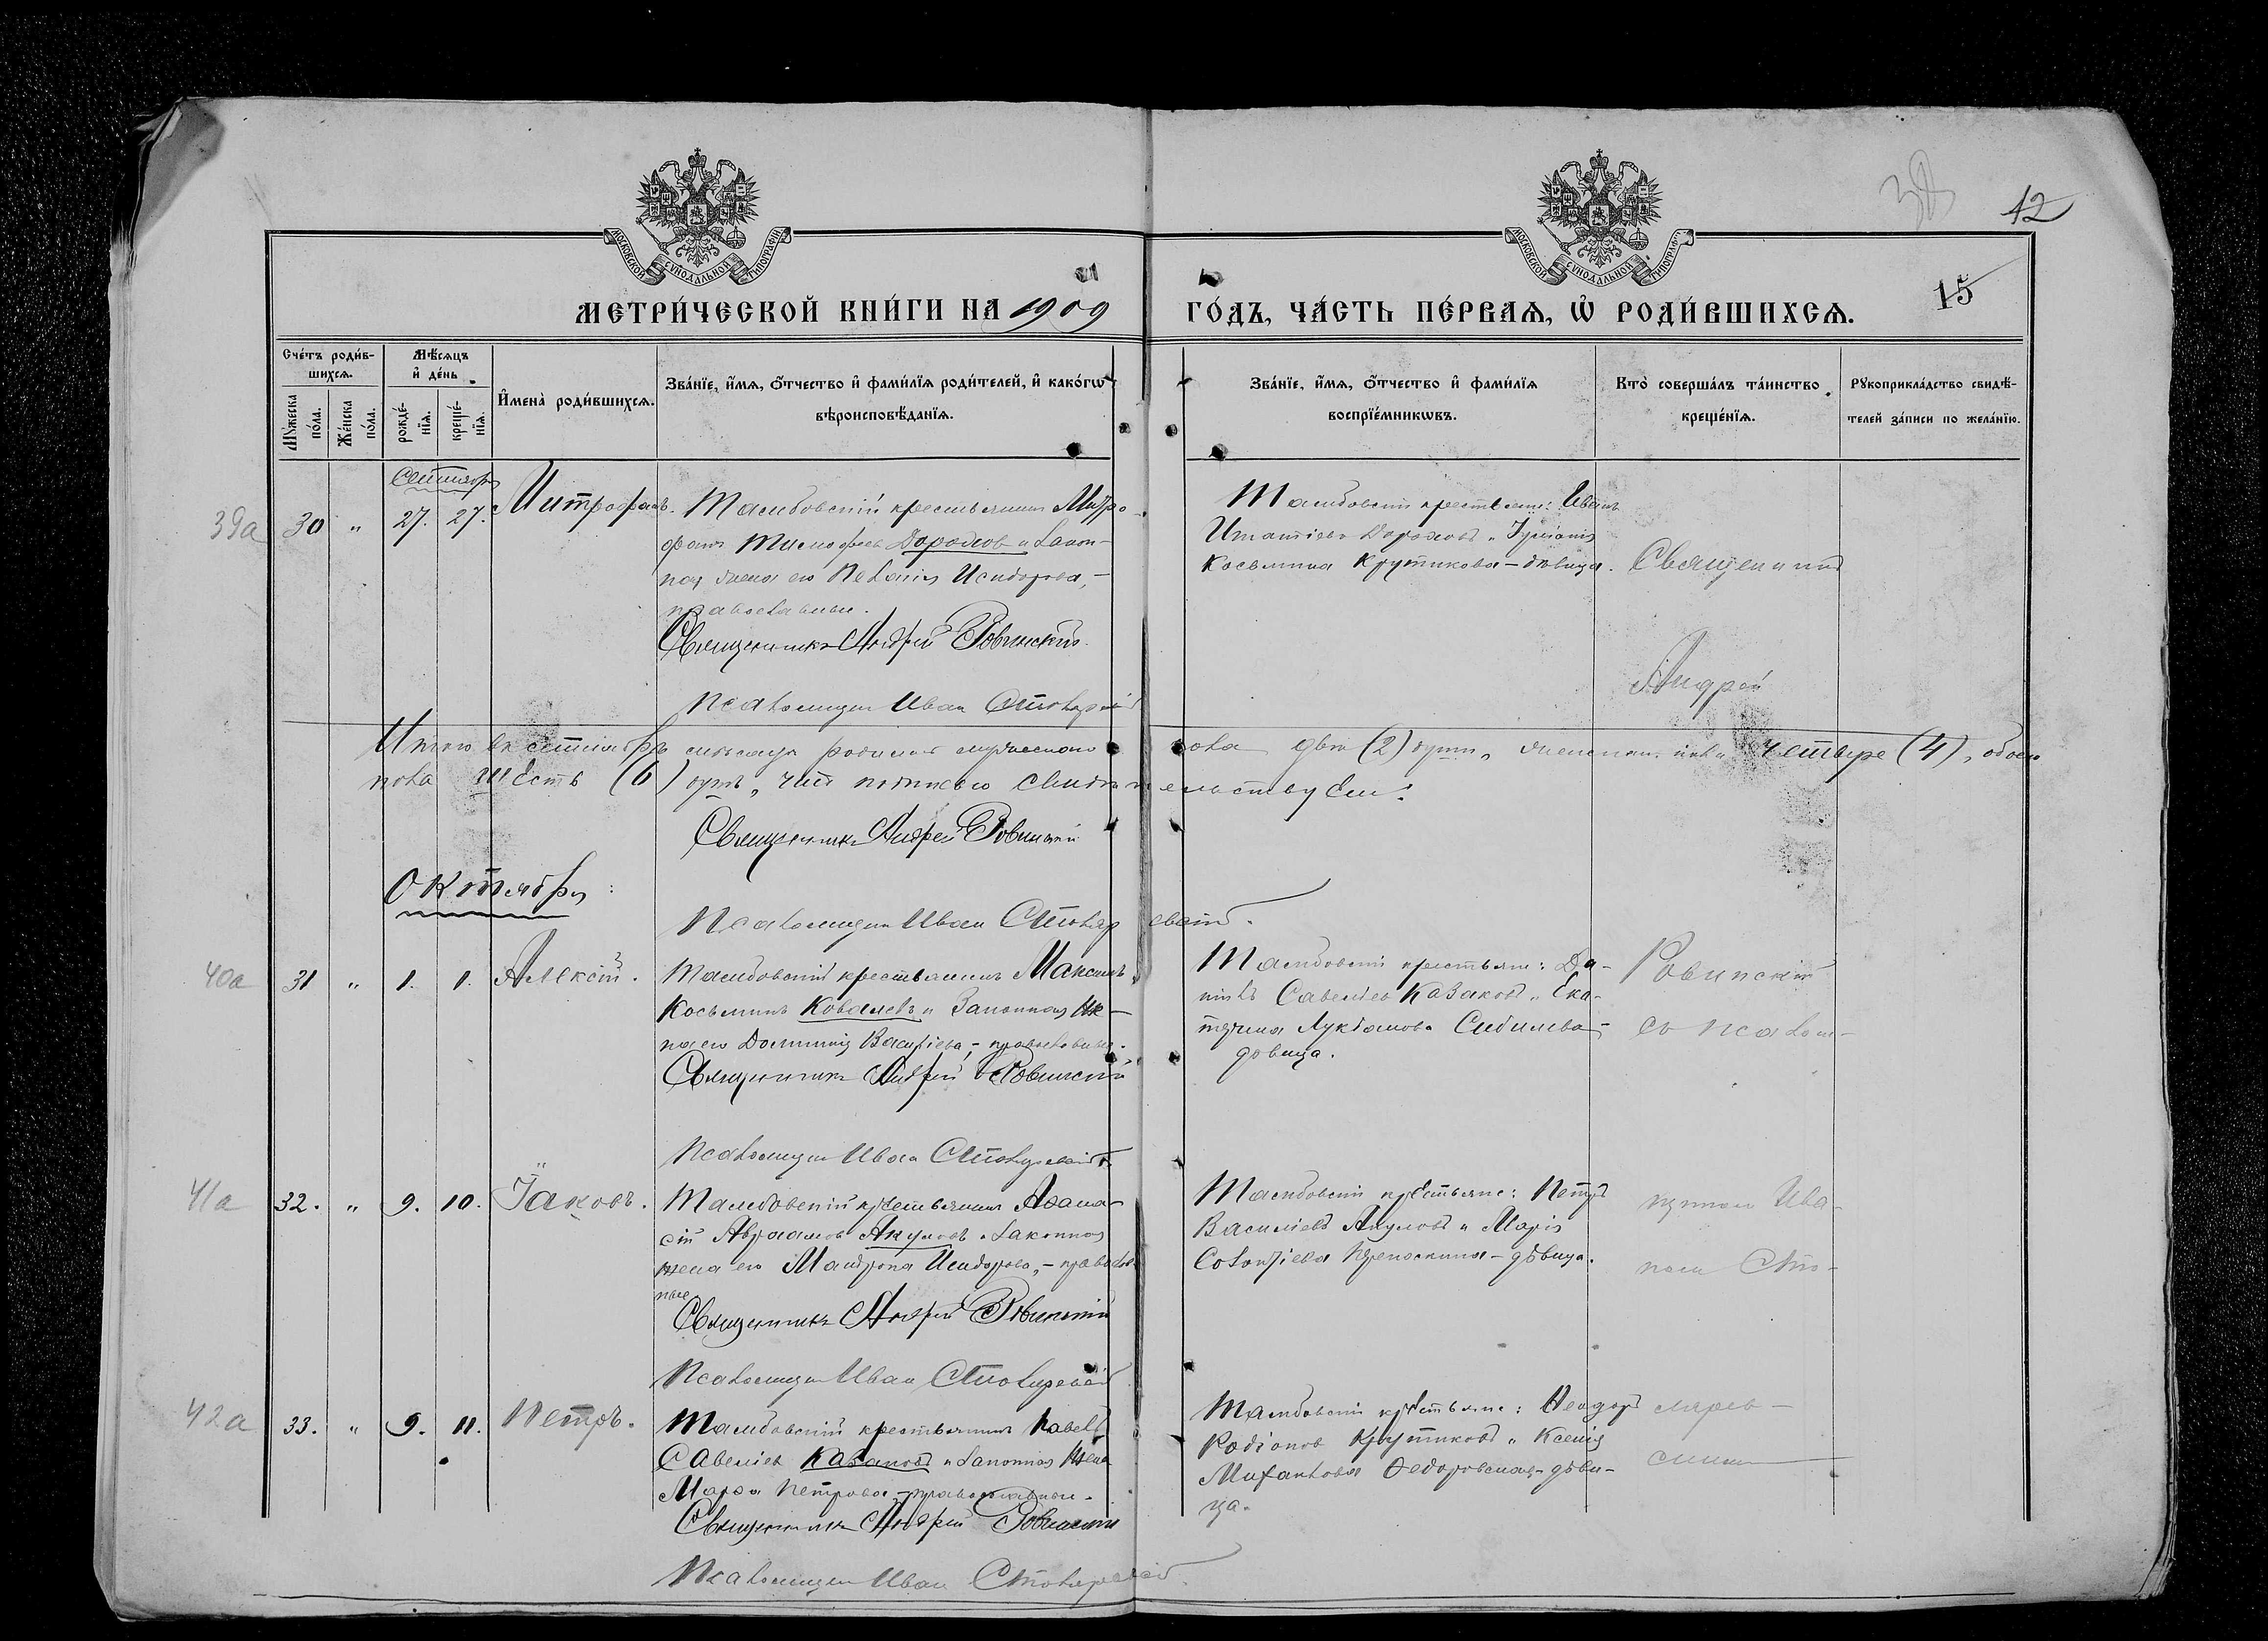 38
12
МОСКОВСКОЙ СѴНОДАЛЬНОЙ ТИПОГРАФІИ
МОСКОВСКОЙ СѴНОДАЛЬНОЙ ТИПОГРАФІИ
15
МЕТРИ́ЧЕСКОЙ КНИ́ГИ НА 1909
ГО́ДЪ, ЧА́СТЬ ПЕ́РВАѦ, Ѡ҆ РОДИ́ВШИХСѦ.
Сче́тъ роди́в-
шихсѧ.
Мѣ́сѧцъ
и҆ де́нь
И҆мена̀ роди́вшихсѧ.
Зва́нїе, и҆́мѧ, ѻ҆́тчество и҆ фами́лїѧ роди́телей, и҆ како́гѡ
вѣроисповѣ́данїѧ.
Зва́нїе, и҆́мѧ, ѻ҆́тчество и҆ фами́лїѧ
воспрїе́мникѡвъ.
Кто̀ соверша́лъ та́инство
креще́нїѧ.
Рꙋкоприкла́дство свидѣ́-
телей за́писи по жела́нїю.
Мꙋ́жеска
по́ла.
Же́нска
по́ла.
рожде́-
нїѧ.
креще́-
нїѧ.
Сентябрь
39а 30 " 27. 27. Митрофанъ.
Тамбовскій крестьянинъ Митро-
фанъ Тимофеевъ Дорожковъ и закон-
ная жена его Пелагія Исидорова,-
православные.
Священникъ Андрей Ровинскій.
Псаломщик Иван Столяревскій
Тамбовскіе крестьяне: Иванъ
Игнатіевъ Дорожковъ и
Косьмина Крутикова - дѣвица.
Священникъ
Андрей
Итого въ сентябрѣ мѣсяцѣ родилось мужескаго пола два (2) души, женскаго пола четыре (4), обоего
пола шесть (6) душъ, чѣмъ подписью свидѣтельствуемъ:
Священникъ Андрей Ровинскій
Октябрь:
Псаломщик Иван Столяревскій.
40а 31 " 1. 1. Алексій.
Тамбовскій крестьянинъ Максимъ
Косьминъ Ковалевъ и законная же-
на его Домникія Васильева,- православные.
Священникъ Андрей Ровинскій
Псаломщик Иван Столяревскій
Тамбовскіе крестьяне: Да-
ніилъ Савеліевъ Казаковъ и Ека-
терина Лукіанова
дѣвица.
Ровинскій
съ псалом-
41а 32. " 9. 10. Іаковъ.
Тамбовскій крестьянинъ Аѳана-
сій Авраамовъ Акуловъ и законная
жена его Матрона Исидорова,- православ-
ные
Священникъ Андрей Ровинскій
Псаломщик Иван Столяревскій
Тамбовскіе крестьяне: Петръ
Василіевъ Акуловъ и Марія
дѣвица.
щикомъ Ива-
номъ Сто-
42а 33. " 9. 11. Петръ.
Тамбовскій крестьянинъ Павелъ
Савеліевъ Казаковъ и законная жена
Марѳа Петрова - православные.
Священникъ Андрей Ровинскій
Псаломщик Иван Столяревскій.
Тамбовскіе крестьяне: Ѳеодоръ
Родіоновъ Крутиковъ и Ксенія
Михайлова Ѳедоровская - дѣви-
ца.
лярев-
скимъ